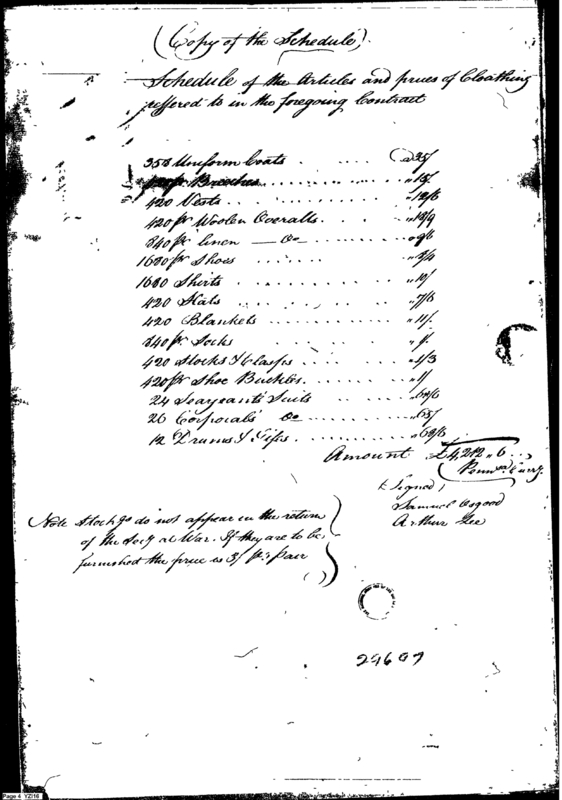 (Copy of the Schedule).
Schedule of the Articles and prices of Cloathing
reffered to in the foregoing Contract
358 Uniform Coats . . . . . . @ 25/
Breeches . . . . . . . . . . . . " 15/
420 Vests . . . . . . . . . . . " 12/6
420 pr Woolen Overalls . . . " 13/9
840 pr linen — Do — . . . . . . . . . . " 9/6
1680 pr Shoes . . . . . .
1680 Shirts . . . . . . . . . . " 10/
420 Hats . . . . . . . . . . . " 7/6
420 Blankets . . . . . . . . . " 11/
840 pr Socks . . . . . . .
420 Stocks & Clasps . . . . . . " 1/3
420 pr Shoe Buckles . . . . . . . " 1/
24 Searjeants Suits . . . . . . .
26 Corporals Do . . . . . . . . " 65/
12 Drums & Fifes . . . . . . . . " 68/6
Amount £4,212 " 6 . . .
Pennsa Curry.
(Signed)
Samuel Osgood
Arthur Lee
Note Stockgs do not appear in the return
of the Secy at War. If they are to be
furnished the price is 3/ pr Pair
29607
Page 4 YZI16